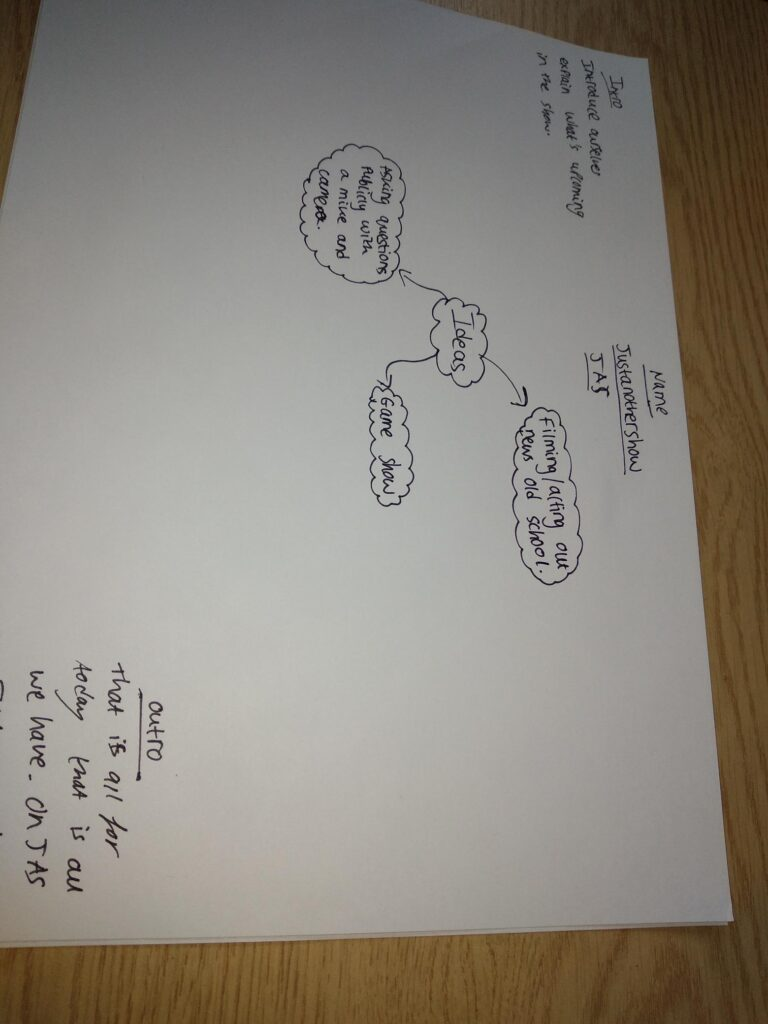 Intro
Introduce ourselves
explain what's upcoming
in the show.
Name
Justanothershow
JAS
Ideas
Filming/acting out
news old school.
Asking questions
Publicly with
a mike and
camera.
Game show
outro
that is all for
today that is all
we have. On JAS